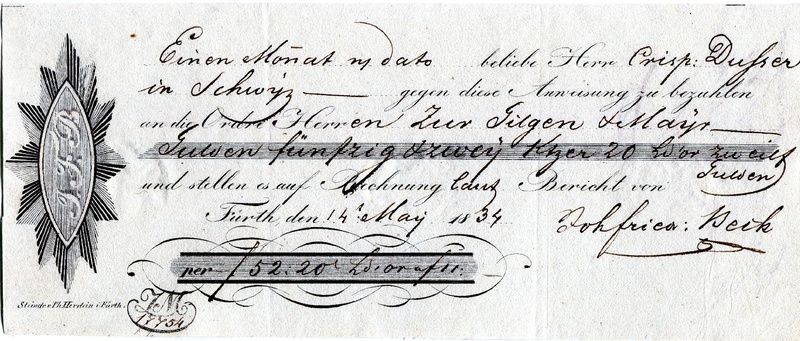 Einen Monat n/ dato beliebe Herr Crisp: Dusser
in Schwÿz gegen diese Anweisung zu bezahlen
an die Ordre Herren Zur Gilgen & Mayr
Gulden fünfzig & zweÿ Kzer 20 Ld'or zu eilf
Gulden
und stellen es auf Rechnung laut Bericht von
Fürth den 14' Maÿ 1834 Johfried: Beck
per f 52.20 Ld'or a f 11.
Steindr. v. Ph. Herdein i. Fürth.
17754